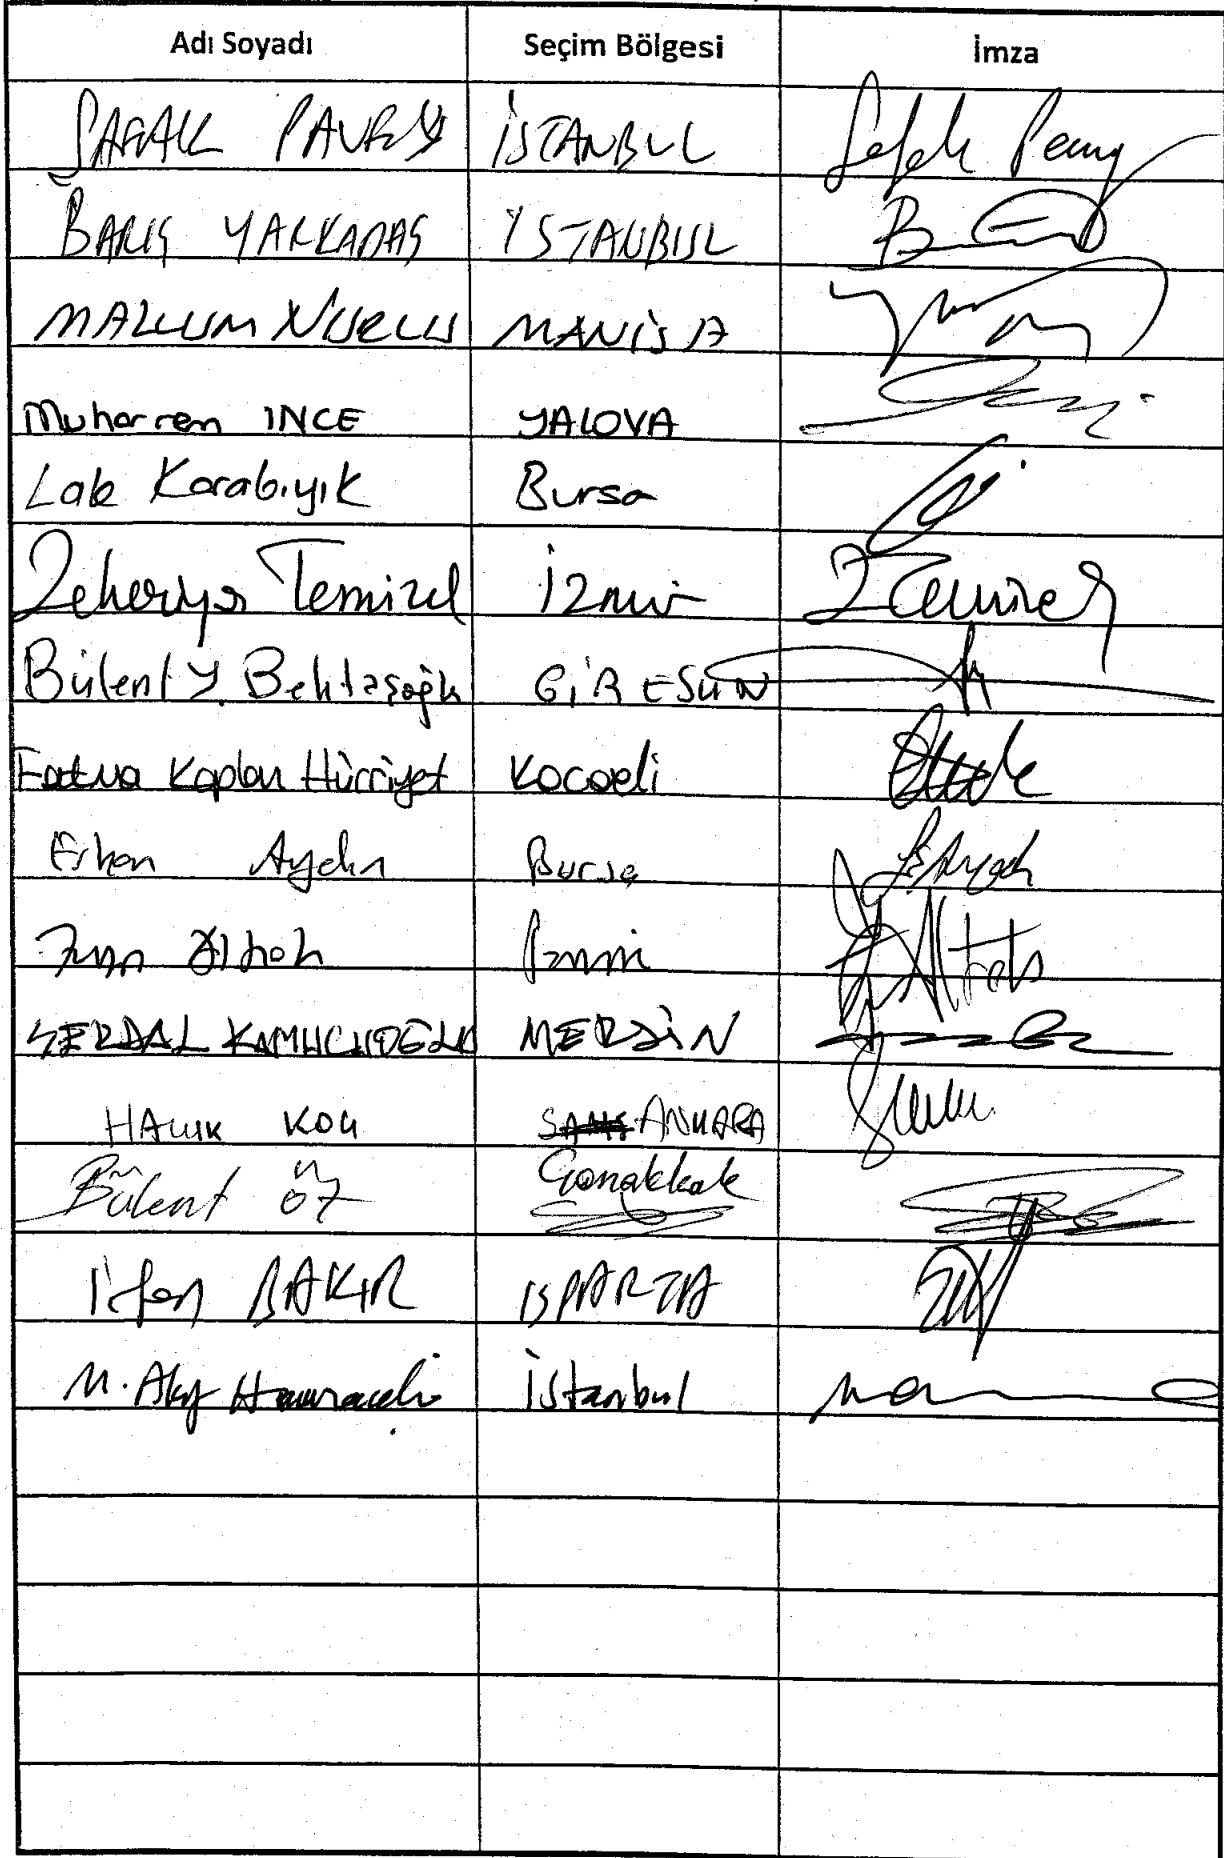 Adı Soyadı Seçim Bölgesi İmza
ŞAFAK PAVEY İSTANBUL Şafak Pavey
BARIŞ YARKADAŞ İSTANBUL
MAZLUM NURLU MANİSA
Muharrem INCE YALOVA
Lale Karabıyık Bursa
Zekeriya Temizel İzmir ZTemizel
Bülent Y. Bektaşoğlu GİRESUN
Fatma Kaplan Hürriyet Kocaeli
Erkan Aydın Bursa EAydın
İzmir
SERDAL KUYUCUOĞLU MERSİN
HALUK KOÇ ANKARA
Bülent ÖZ Çanakkale
İrfan BAKIR ISPARTA
M. Akif Hamzaçebi İstanbul